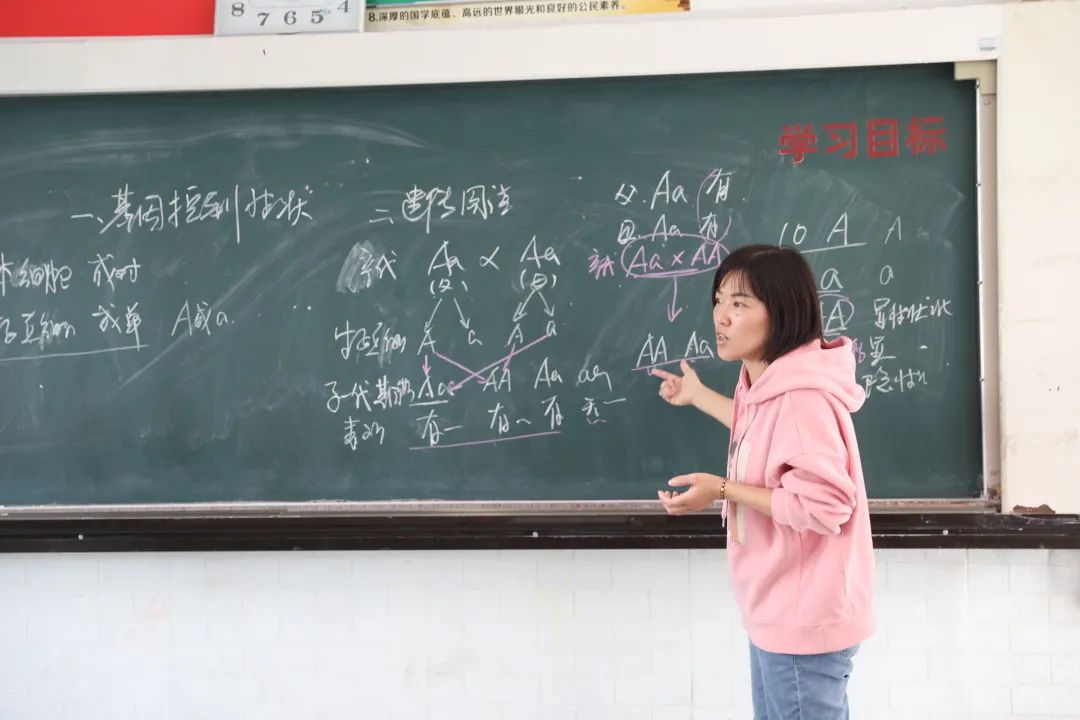 8 7 6 5 4
8.深厚的国学底蕴、高远的世界眼光和良好的公民素养。
学习目标
一、基因控制性状
体细胞 成对
成单 A或a
二、遗传图谱
亲代 Aa × Aa
(父) (母)
生殖细胞 A a A a
子代基因 Aa AA Aa aa
表现 有一 有一 有 无一
父 Aa 有
母 Aa 有
亲代 Aa × AA
AA Aa
10 A A
a a
A 显性
显
隐性